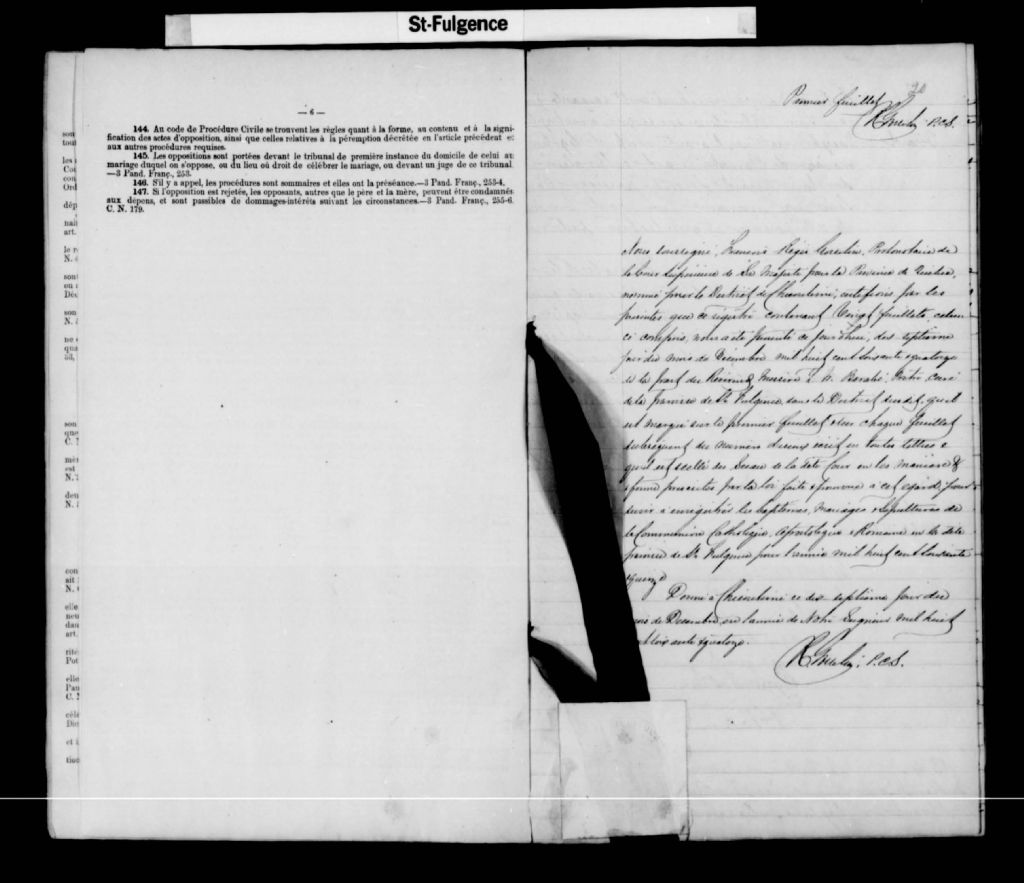 St-Fulgence
— 6 —
144. Au code de Procédure Civile se trouvent les règles quant à la forme, au contenu et à la signi-
fication des actes d'opposition, ainsi que celles relatives à la péremption décrétée en l'article précédent et
aux autres procédures requises.
145. Les oppositions sont portées devant le tribunal de première instance du domicile de celui au
mariage duquel on s'oppose, ou du lieu où droit de célébrer le mariage, ou devant un juge de ce tribunal
—3 Pand. Franç., 253.
146. S'il y a appel, les procédures sont sommaires et elles ont la préséance.—3 Pand. Franç., 253-4.
147. Si l'opposition est rejetée, les opposants, autres que le père et la mère, peuvent être condamnés
aux dépens, et sont passibles de dommages-intérêts suivant les circonstances.—3 Pand. Franç., 255-6.
C. N. 179.
Premier feuillet
P.C.S.
Nous soussigné, François Régis Gosselin, Protonotaire de
la Cour Supérieure de Sa Majesté pour la Province de Québec,
nommé pour le District de Chicoutimi, certifions par les
présentes que ce registre contenant Vingt feuillets, celui
ci compris, nous a été présenté ce jourd'hui, dix septième
jour du mois de Décembre mil huit cent soixante & quatorze
de la part du Révérend Messire Prêtre Curé
de la paroisse de St Fulgence, dans le District susdit, qu'il
est marqué sur le premier feuillet & sur chaque feuillet
subséquent du numéro d'iceux écrit en toutes lettres &
qu'il est scellé du Sceau de la dite Cour en la manière &
forme prescrites par la loi faite & pourvue à cet égard, pour
servir à enregistrer les baptêmes, Mariages & Sépultures de
la Communion Catholique, Apostolique & Romaine en la dite
paroisse de St Fulgence pour l'année mil huit cent soixante
& quinze
Donné à Chicoutimi ce dix septième jour du
mois de Décembre, en l'année de Notre Seigneur mil huit
cent soixante & quatorze.
P.C.S.